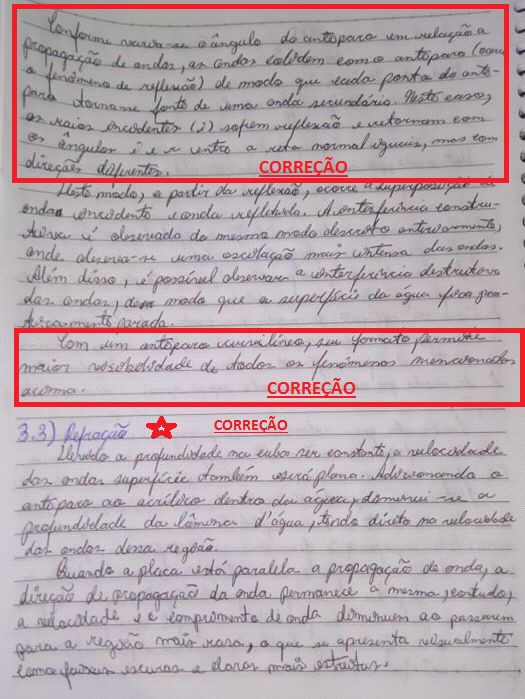 Conforme varia-se o ângulo do anteparo em relação a
propagação de ondas, as ondas colidem com o anteparo (ocorre
o fenômeno de reflexão) de modo que cada ponto do ante-
paro torna-se fonte de uma onda secundária. Neste caso,
os raios incidentes (i) sofrem reflexão e retornam com
os ângulos i e r entre a reta normal iguais, mas com
direções diferentes.
CORREÇÃO
Deste modo, a partir da reflexão, ocorre a superposição da
onda incidente e onda refletida. A interferência constru-
tiva é observada do mesmo modo descrito anteriormente,
onde observa-se uma oscilação mais intensa das ondas.
Além disso, é possível observar a interferência destrutiva
das ondas, de modo que a superfície da água fica pra-
ticamente parada.
Com um anteparo curvilíneo, seu formato permite
maior visibilidade de todos os fenômenos mencionados
acima.
CORREÇÃO
3.3) Refração
CORREÇÃO
Devido a profundidade na cuba ser constante, a velocidade
das ondas superfície também será plana. Adicionando o
anteparo ao acrílico dentro da água, diminui-se a
profundidade da lâmina d'água, tendo direto na velocidade
das ondas dessa região.
Quando a placa está paralela a propagação de onda, a
direção de propagação da onda permanece a mesma, contudo,
a velocidade e o comprimento de onda diminuem ao passarem
para a região mais rasa, o que se apresenta visualmente
como faixas escuras e claras mais estreitas.